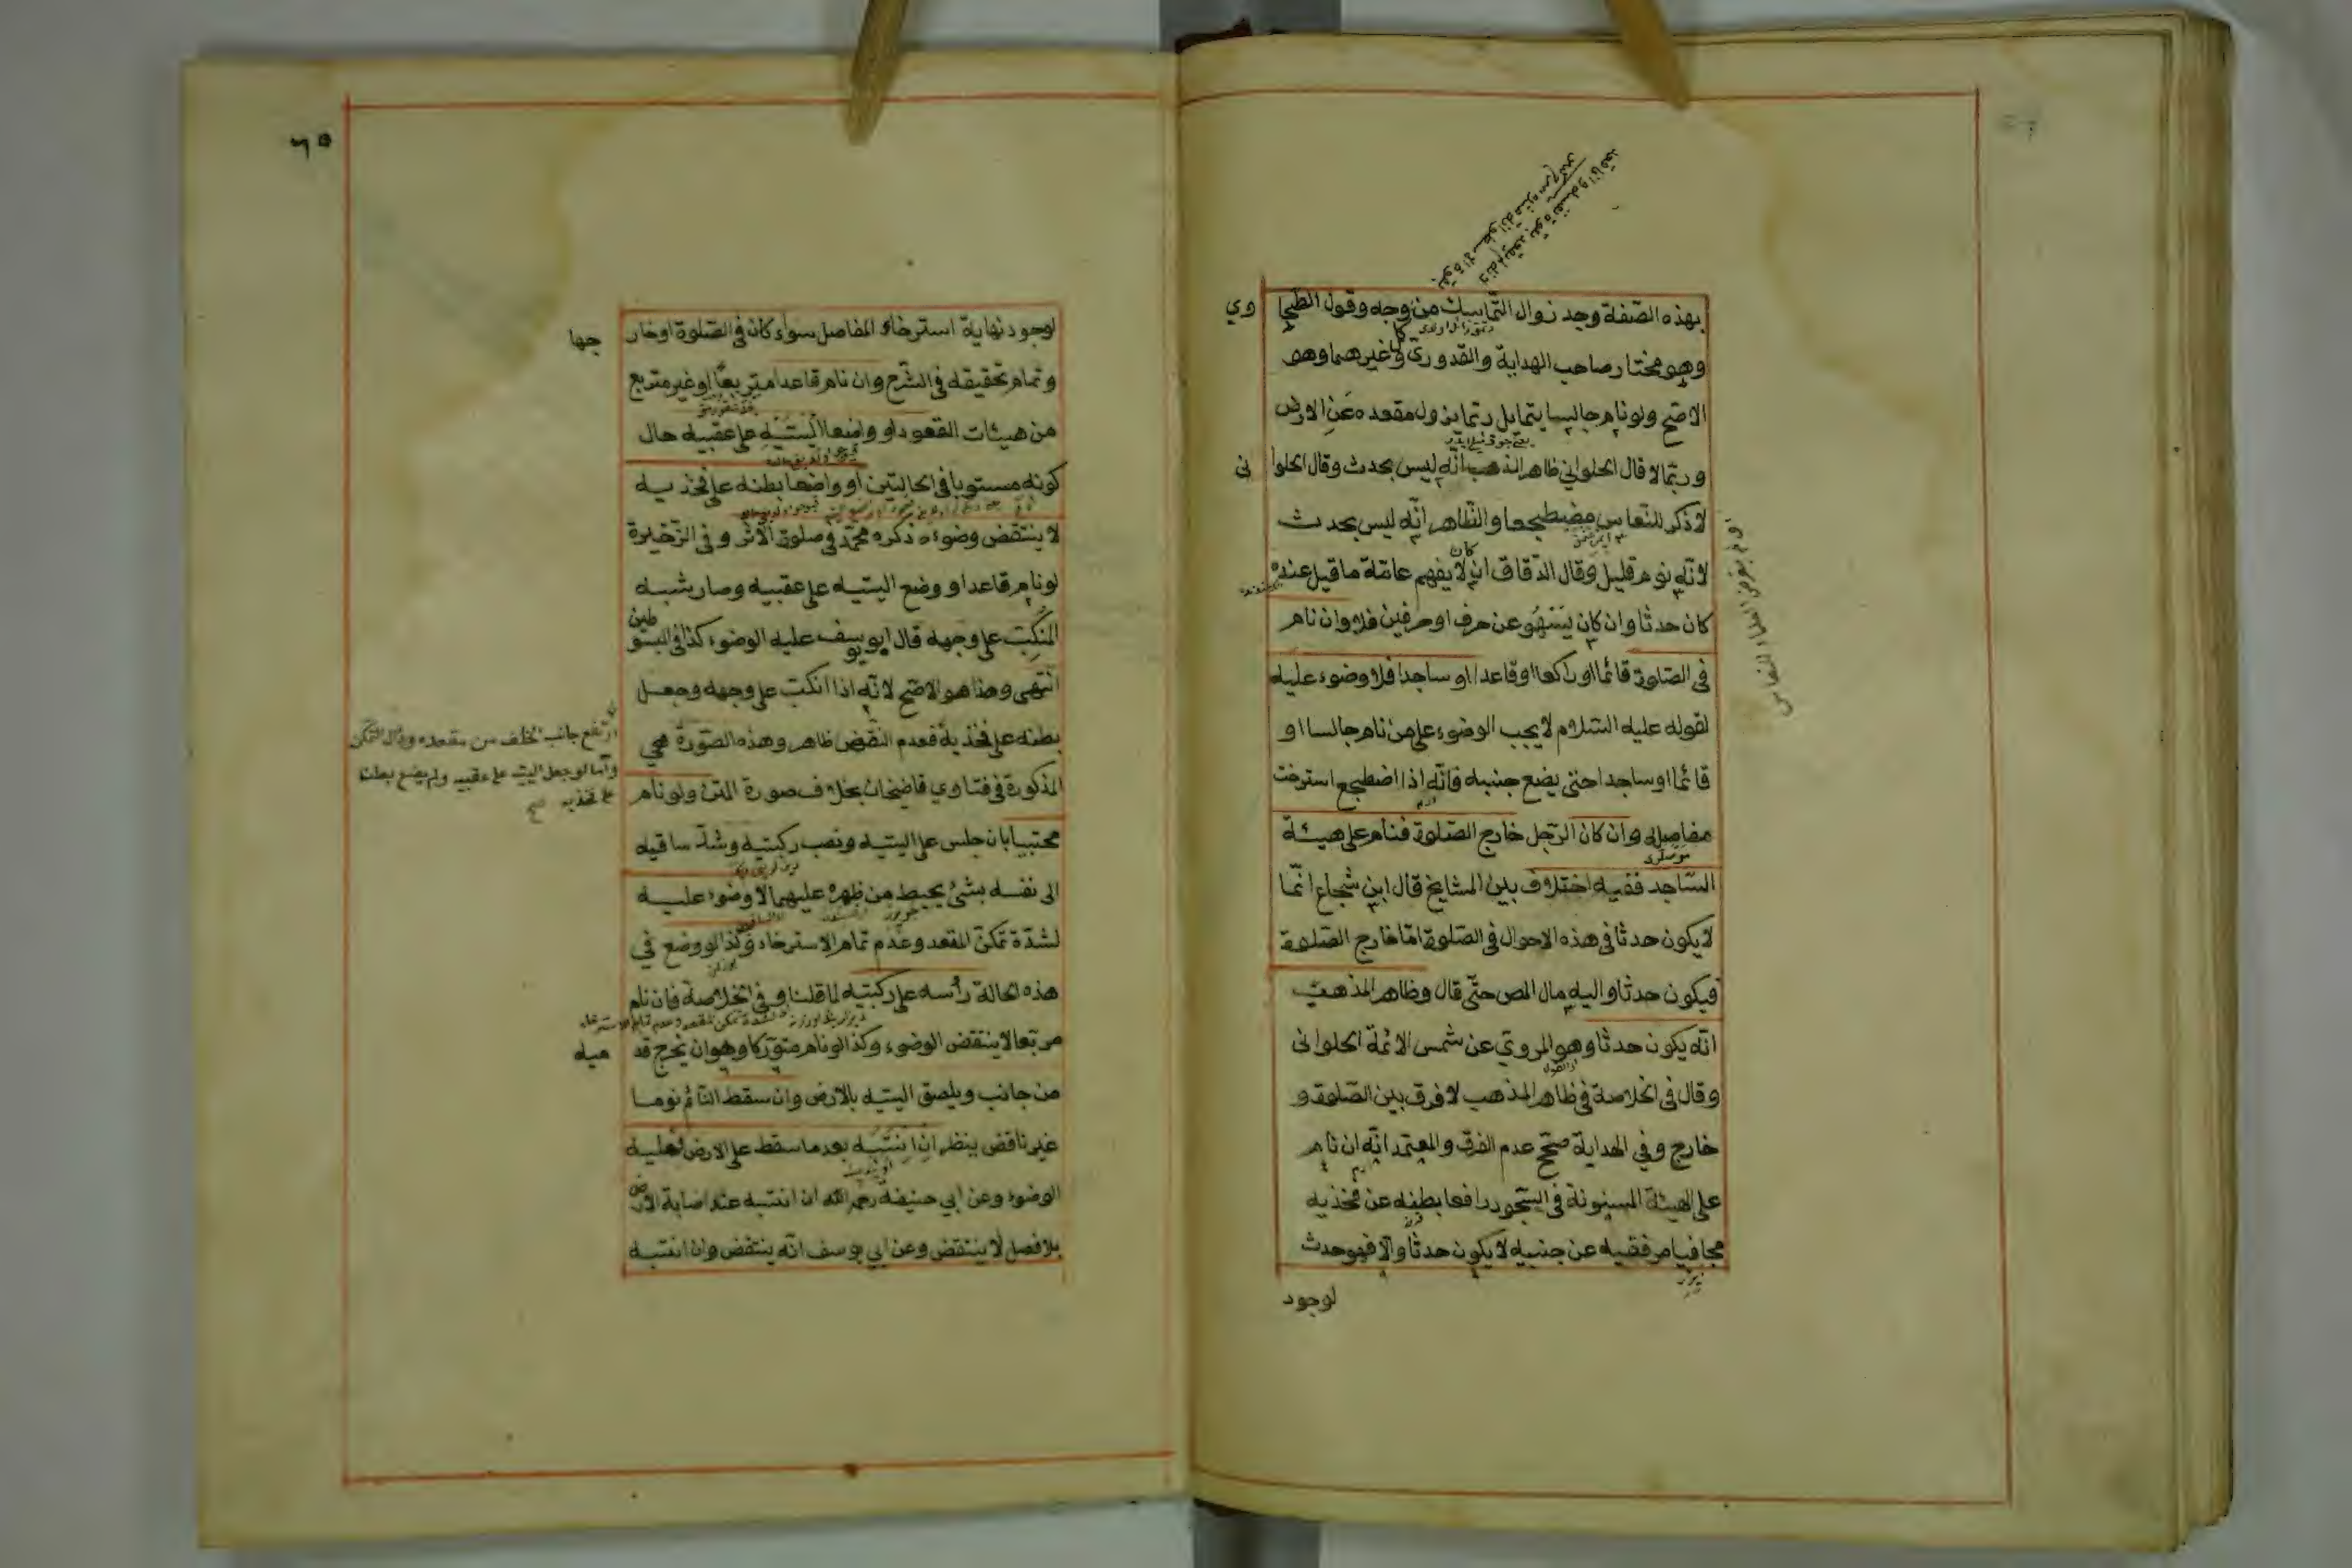 بهذه الصّفة وجد زوال التّماسك من وجه وقول الطّحا وي
وهو مختار صاحب الهداية والقدوريّ وغيرهما وهو
الاصحّ ولو نام جالسا يتمايل ربّما يزول مقعده عن الارض
وربّما لا قال الحلواني ظاهر المذهب انّه ليس بحدث وقال الحلوا نى
لا ذكر للنّعاس مضطجعا والظّاهر انّه ليس بحدث
لانّه نوم قليل وقال الدّقاق ان كان لا يفهم عامّة ما قيل عنده
كان حدثا وان كان يسهو عن حرف او حرفين فلا وان نام
فى الصّلوة قائما او راكعا او قاعدا او ساجدا فلا وضوء عليه
لقوله عليه السّلام لا يجب الوضوء على من نام جالسا او
قائما او ساجدا حتى يضع جنبه فانّه اذا اضطجع استرخت
مفاصله وان كان الرّجل خارج الصّلوة فنام على هيئة
السّاجد ففيه اختلاف بين المشايخ قال ابن شجاع انّما
لا يكون حدثا فى هذه الاحوال فى الصّلوة امّا خارج الصّلوة
فيكون حدثا واليه مال المص حتّى قال وظاهر المذهب
انّه يكون حدثا وهو المرويّ عن شمس الائمّة الحلوانى
وقال فى الخلاصة فى ظاهر المذهب لا فرق بين الصّلوة و
خارج وفي الهداية صحّح عدم الفرق والمعتمد انّه ان نام
على الهيئة المسنونة فى السّجود رافعا بطنه عن فخذيه
مجافيا مرفقيه عن جنبيه لا يكون حدثا والّا فهو حدث
لوجود
٦٥
لوجود نهاية استرخاء المفاصل سواء كان فى الصّلوة او خار جها
وتمام تحقيقه فى الشّرح وان نام قاعدا متربعّا او غير متربع
من هيئات القعود او واضعا اليتيه على عقبيه حال
كونه مستويا فى الحالتين او واضعا بطنه على فخذيه
لا ينتقض وضوءه ذكره محمّد في صلوة الاثر وفى الذّخيرة
لو نام قاعدا ووضع اليتيه على عقبيه وصار شبه
المنكبّ على وجهه قال ابو يوسف عليه الوضوء كذا فى المبسو طين
انتهى وهذا هو الاصحّ لانّه اذا انكبّ على وجهه وجعل
بطنه على فخذيه فعدم النّقض ظاهر وهذه الصّورة هي
المذكورة فى فتاوي قاضيخان بخلاف صورة المتن ولو نام
محتبيا بان جلس على اليتيه ونصب ركبتيه وشدّ ساقيه
الى نفسه بشئ يحيط من ظهره عليهما لا وضوء عليه
لشدّة تمكنّ المقعد وعدم تمام الاسترخاء وكذا لو وضع في
هذه الحالة رأسه على ركبتيه لما قلنا وفي الخلاصة فان نام
مربّعا لا ينتقض الوضوء وكذا لو نام متورّكا وهو ان يخرج قد ميه
من جانب ويلصق اليتيه بالارض وان سقط النّائم نوما
غير ناقض ينظر ان انتبه بعد ما سقط على الارض فعليه
الوضوء وعن ابي حنيفة رحمه الله ان انتبه عند اصابة الارض
بلا فصل لا ينتقض وعن ابي يوسف انّه ينتقض وان انتبه
ارتفع جانب الخلف من مقعده وزال التمكن
وامّا لو جعل اليتيه على عقبيه ولم يضع بطنه
على فخذيه صح